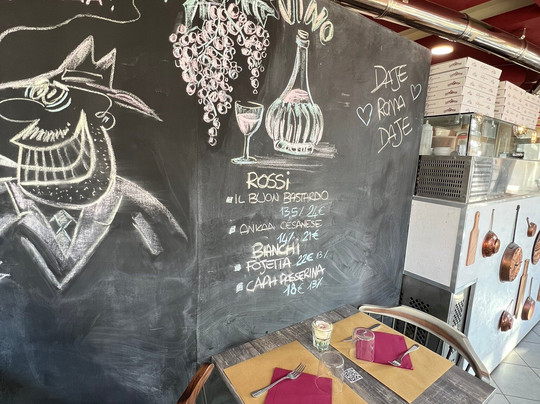 VINO
DAJE
ROMA
DAJE
ROSSI
IL BUON BASTARDO
13,5% 24€
ANKAA CESANESE
14% 21€
BIANCHI
FOJETTA 22€ 13%
18€ 13%